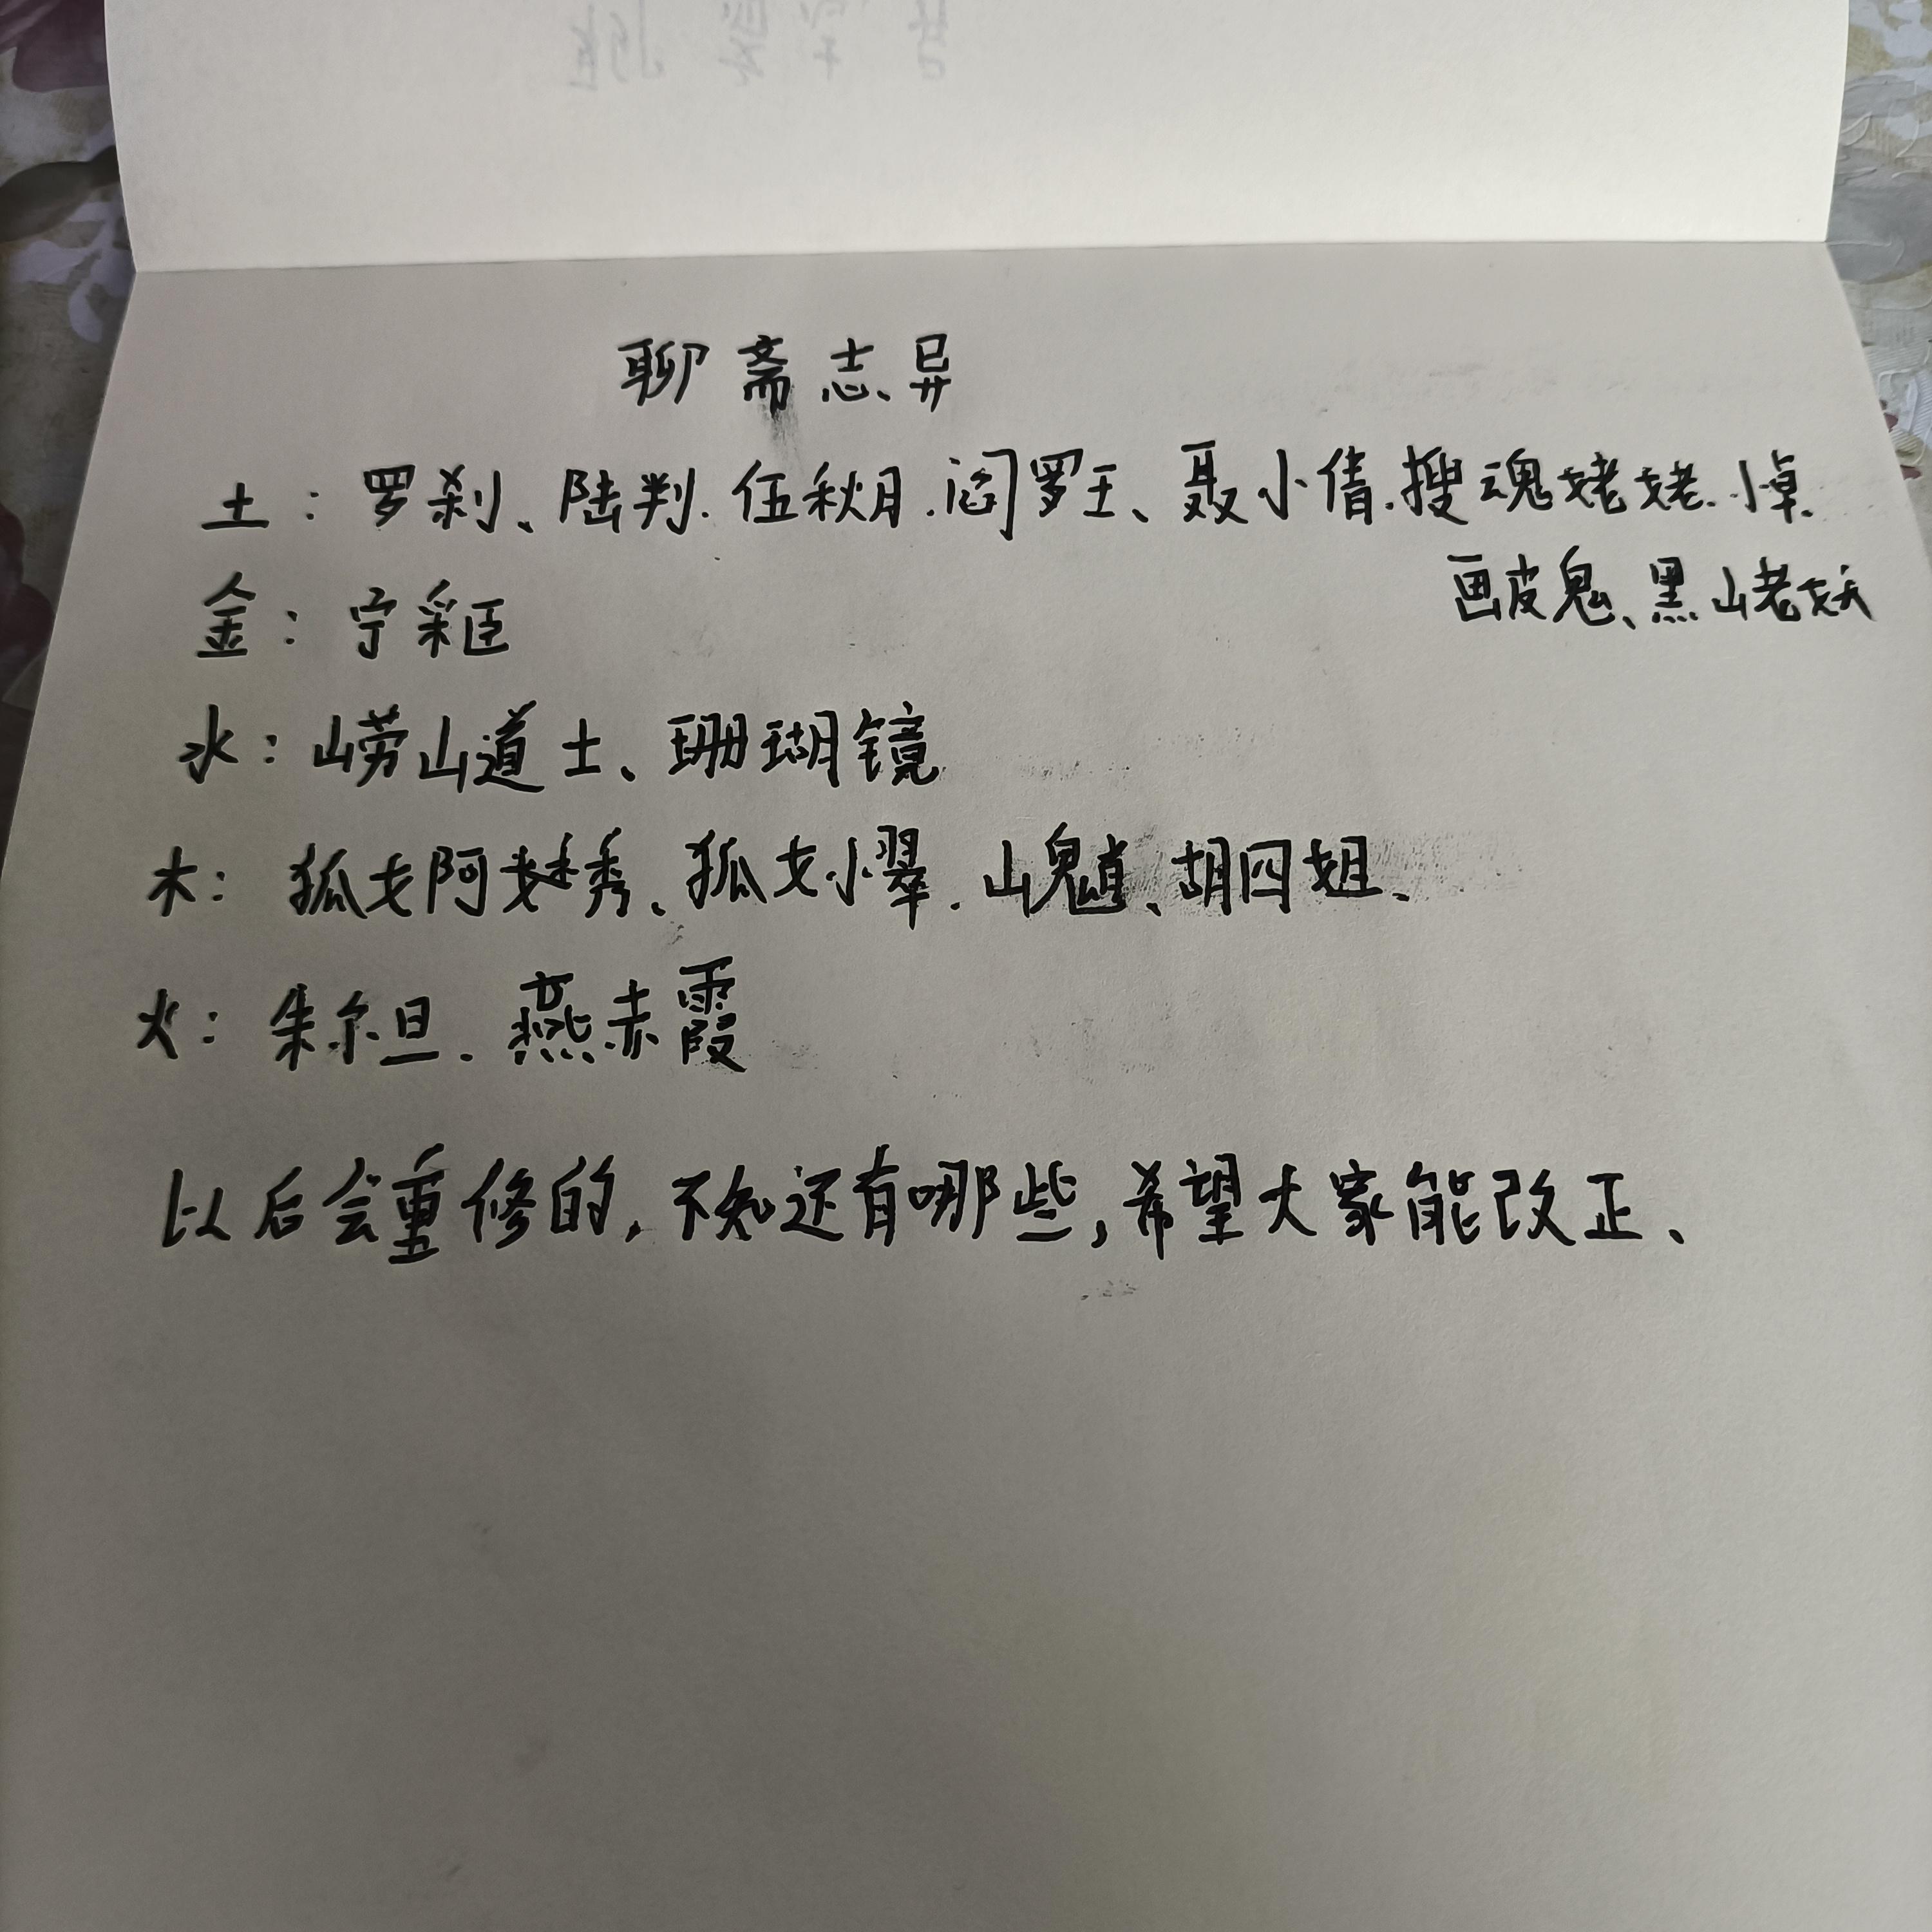 聊斋志异
土：罗刹、陆判.伍秋月.阎罗王、聂小倩.搜魂姥姥.小倬.
画皮鬼、黑山老妖
金：宁采臣
水：崂山道士、珊瑚镜
木：狐女阿绣、狐女小翠.山魈、胡四姐、
火：朱尔旦.燕赤霞
以后会重修的,不知还有哪些,希望大家能改正、